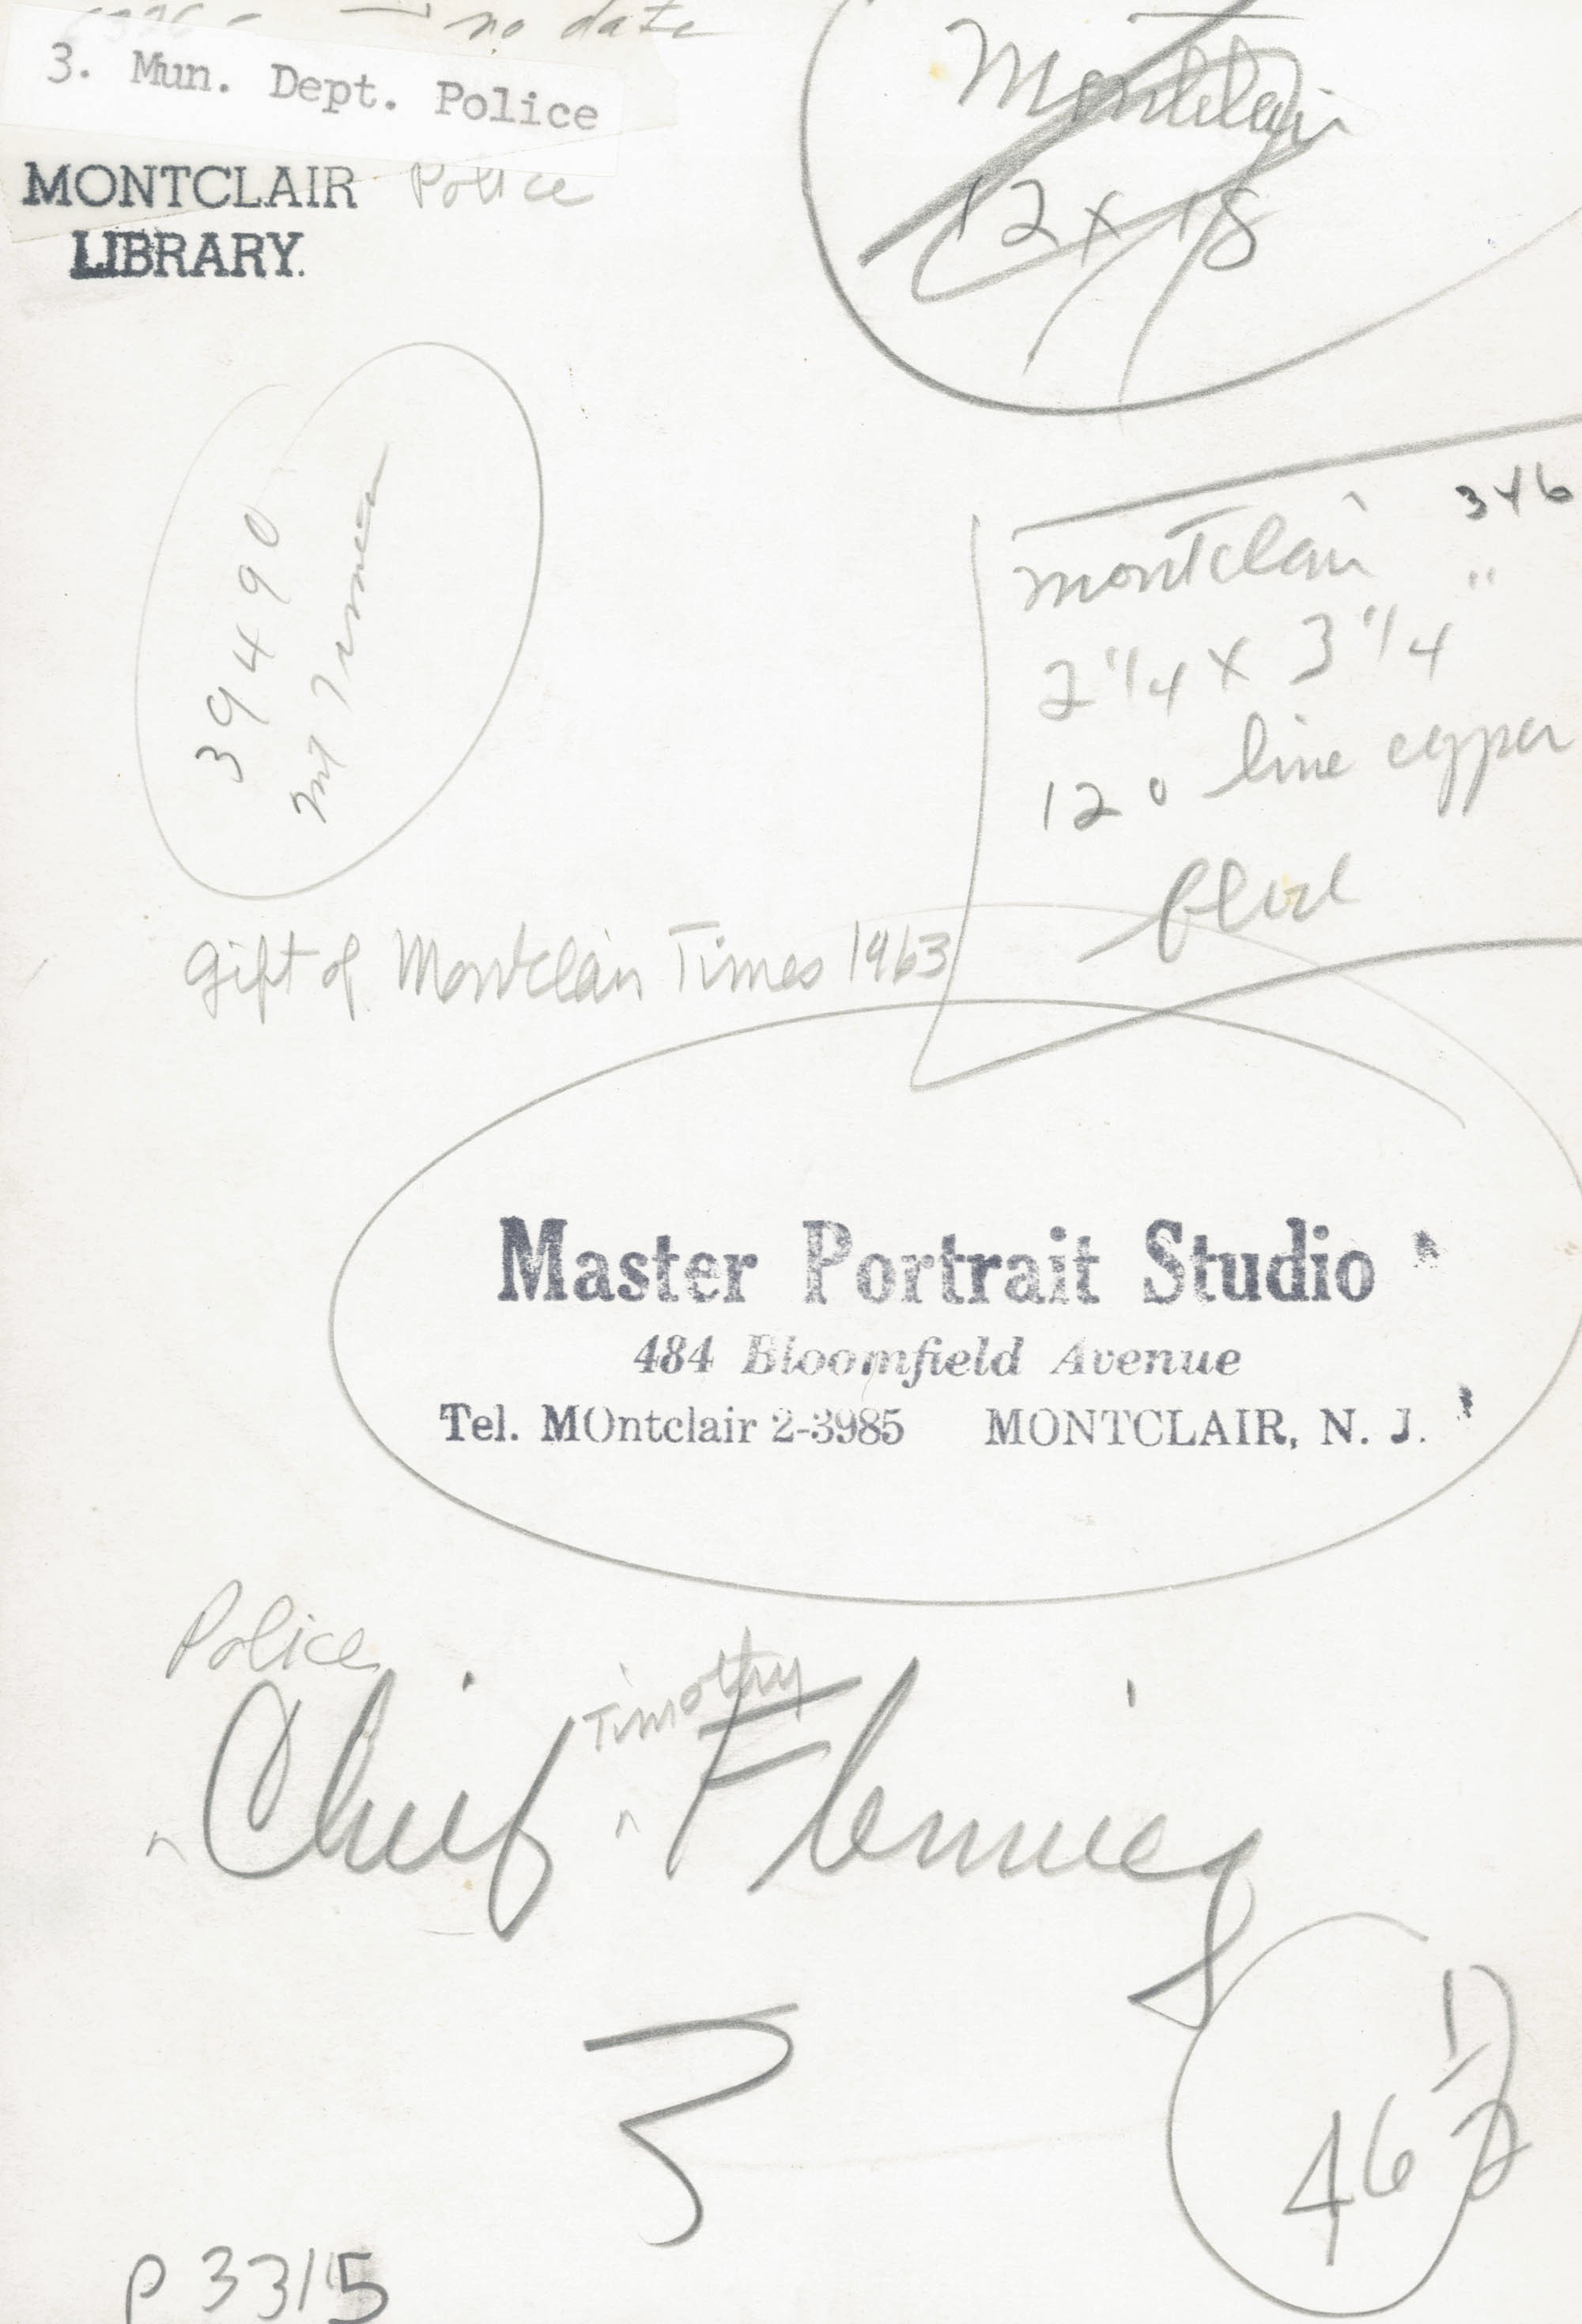 no date
3. Mun. Dept. Police
MONTCLAIR
LIBRARY.
Police
Montclair
12 x 18
39490
Mt Times
346
montclair "
2 1/4 x 3 1/4"
120 line copper
Gift of Montclair Times 1963
Master Portrait Studio
484 Bloomfield Avenue
Tel. MOntclair 2-3985 MONTCLAIR, N. J.
Police
Timothy
Chief Fleming
3
46 1/2
P 3315